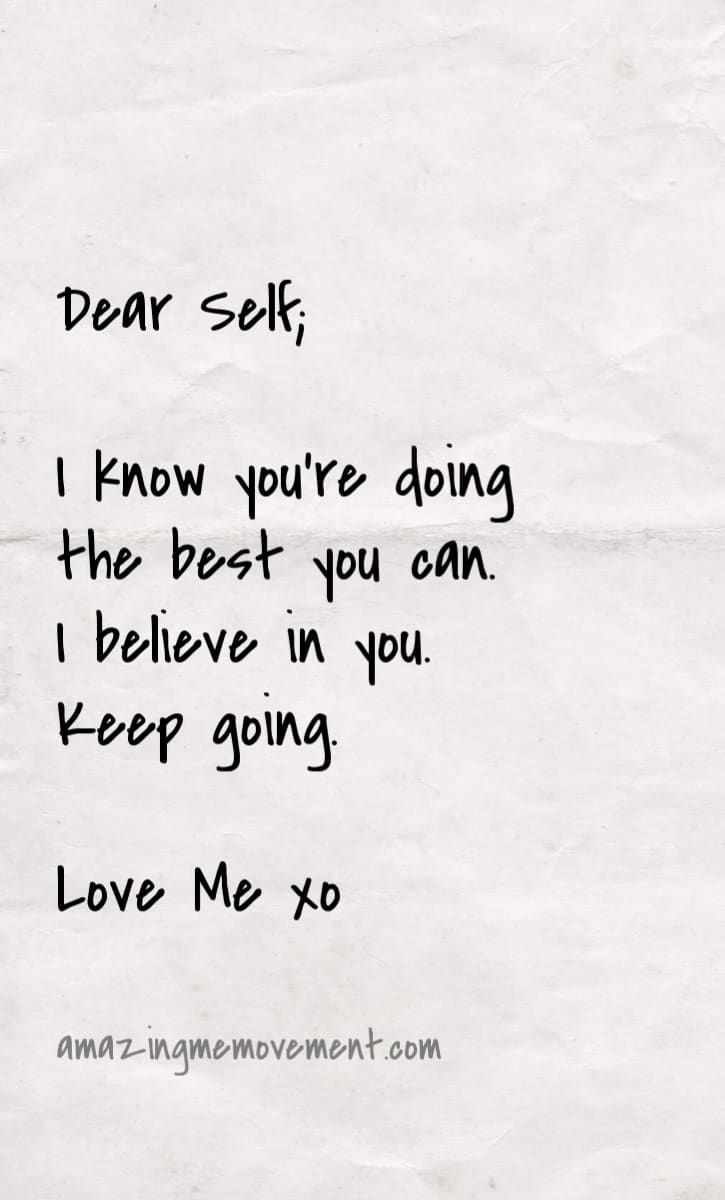 Dear Self;
I know you're doing
the best you can.
I believe in you.
Keep going.
Love Me xo
amazingmemovement.com